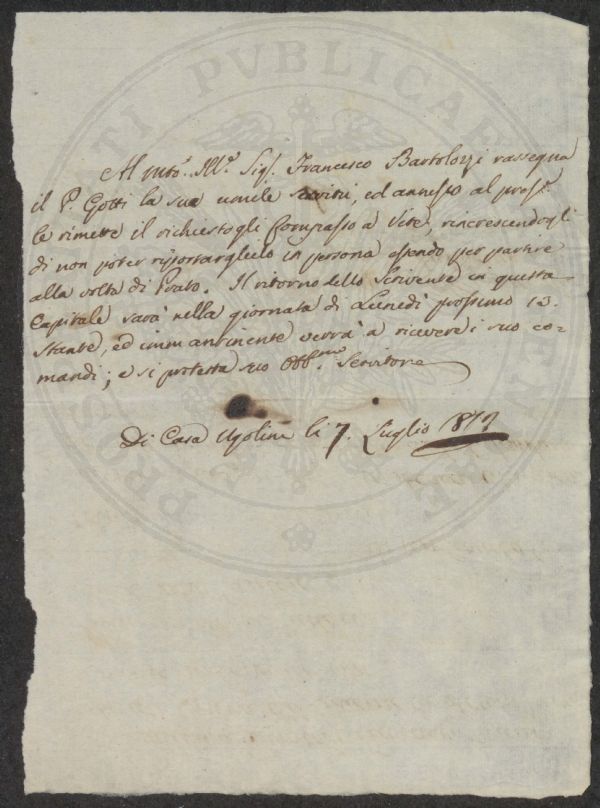 Al Mto. Ill.e Sig.r Francesco Bartolozzi rassegna
il P. Gotti la sua umile servitù, ed annesso al
le rimette il richiestogli Compasso a Vite, rincrescendogli
di non poter riportarglielo in persona essendo per partire
alla volta di Prato. Il ritorno dello Scrivente in questa
Capitale sarà nella giornata di Lunedì prossimo 12.
Stante, ed immantinente verrà a ricevere i suoi co-
mandi; e si protesta suo Obb.mo Servitore
Di Casa Ugolini li 7. Luglio
PUBLICAE